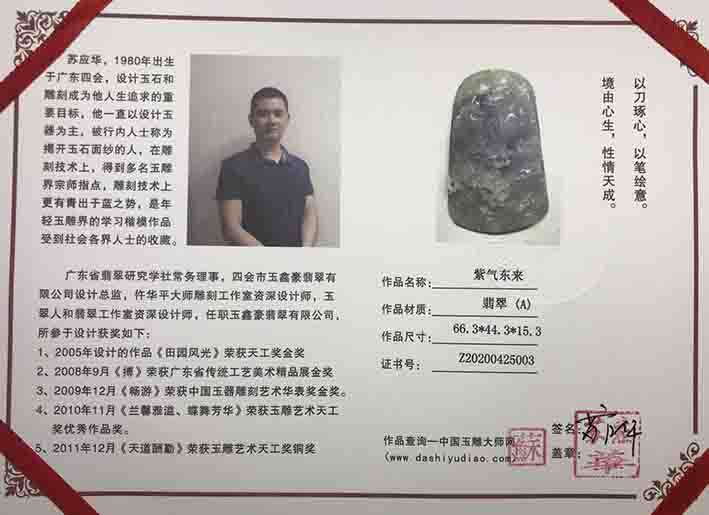 苏应华，1980年出生
于广东四会，设计玉石和
雕刻成为他人生追求的重
要目标，他一直以设计玉
器为主，被行内人士称为
揭开玉石面纱的人，在雕
刻技术上，得到多名玉雕
界宗师指点，雕刻技术上
更有青出于蓝之势，是年
轻玉雕界的学习楷模作品
受到社会各界人士的收藏。
以刀琢心，以笔绘意。
境由心生，性情天成。
广东省翡翠研究学社常务理事，四会市玉鑫豪翡翠有
限公司设计总监，仵华平大师雕刻工作室资深设计师，玉
翠人和翡翠工作室资深设计师，任职玉鑫豪翡翠有限公司，
所参于设计获奖如下：
1、2005年设计的作品《田园风光》荣获天工奖金奖
2、2008年9月《搏》荣获广东省传统工艺美术精品展金奖
3、2009年12月《畅游》荣获中国玉器雕刻艺术华表奖金奖。
4、2010年11月《兰馨雅溢、蝶舞芳华》荣获玉雕艺术天工
奖优秀作品奖。
5、2011年12月《天道酬勤》荣获玉雕艺术天工奖铜奖
作品名称：紫气东来
作品材质：翡翠（A）
作品尺寸：66.3*44.3*15.3
证书号：Z20200425003
作品查询—中国玉雕大师网
(www.dashiyudiao.com)
签名：
盖章：
蘇